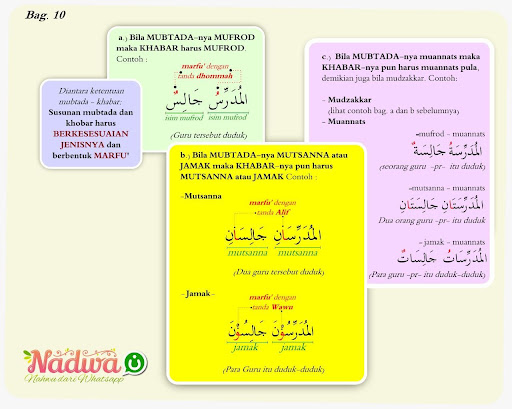 Bag. 10
Diantara ketentuan
mubtada - khabar:
Susunan mubtada dan
khobar harus
BERKESESUAIAN
JENISNYA dan
berbentuk MARFU'
a.) Bila MUBTADA–nya MUFROD
maka KHABAR harus MUFROD.
Contoh :
marfu' dengan
tanda dhommah
المُدَرِّسُ جَالِسٌ
isim mufrod isim mufrod
(Guru tersebut duduk)
b.) Bila MUBTADA–nya MUTSANNA atau
JAMAK maka KHABAR–nya pun harus
MUTSANNA atau JAMAK Contoh :
–Mutsanna
marfu' dengan
tanda Alif
المُدَرِّسَانِ جَالِسَانِ
mutsanna mutsanna
(Dua guru tersebut duduk)
– Jamak –
marfu' dengan
tanda Wawu
المُدَرِّسُوْنَ جَالِسُوْنَ
jamak jamak
(Para Guru itu duduk-duduk)
c.) Bila MUBTADA–nya muannats maka
KHABAR–nya pun harus muannats pula,
demikian juga bila mudzakkar. Contoh:
- Mudzakkar
(lihat contoh bag. a dan b sebelumnya)
- Muannats
-mufrod – muannats
المُدَرِّسَةُ جَالِسَةٌ
(seorang guru -pr- itu duduk)
-mutsanna – muannats
المُدَرِّسَتَانِ جَالِسَتَانِ
Dua orang guru -pr- itu duduk
- jamak – muannats
المُدَرِّسَاتُ جَالِسَاتٌ
(Para guru -pr- itu duduk-duduk)
Nadwa
Nahwu dari Whatsapp
ن